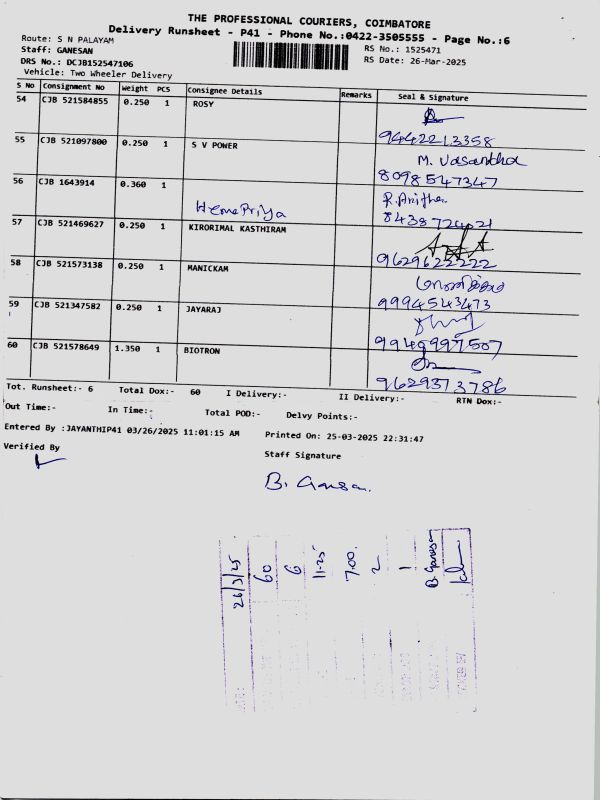 THE PROFESSIONAL COURIERS, COIMBATORE
Delivery Runsheet - P41 - Phone No.:0422-3505555 - Page No.:6
Route: S N PALAYAM
RS No.: 1525471
Staff: GANESAN
RS Date: 26-Mar-2025
DRS No.: DCJB152547106
Vehicle: Two Wheeler Delivery
S No Consignment No Weight PCS Consignee Details Remarks Seal & Signature
54 CJB 521584855 0.250 1 ROSY
9442213358
55 CJB 521097800 0.250 1 S V POWER M. Vasantha
8098547347
56 CJB 1643914 0.360 1 R.Anitha
HemaPriya 8438724021
57 CJB 521469627 0.250 1 KIRORIMAL KASTHIRAM
9629622222
58 CJB 521573138 0.250 1 MANICKAM
9994543473
59 CJB 521347582 0.250 1 JAYARAJ
9949997507
60 CJB 521578649 1.350 1 BIOTRON
9629373786
Tot. Runsheet:- 6 Total Dox:- 60 I Delivery:- II Delivery:- RTN Dox:-
Out Time:- In Time:- Total POD:- Delvy Points:-
Entered By :JAYANTHIP41 03/26/2025 11:01:15 AM Printed On: 25-03-2025 22:31:47
Verified By Staff Signature
B. Ganesan.
26/3/25
60
6
11.25
7.00.
2
1
B. Ganesan